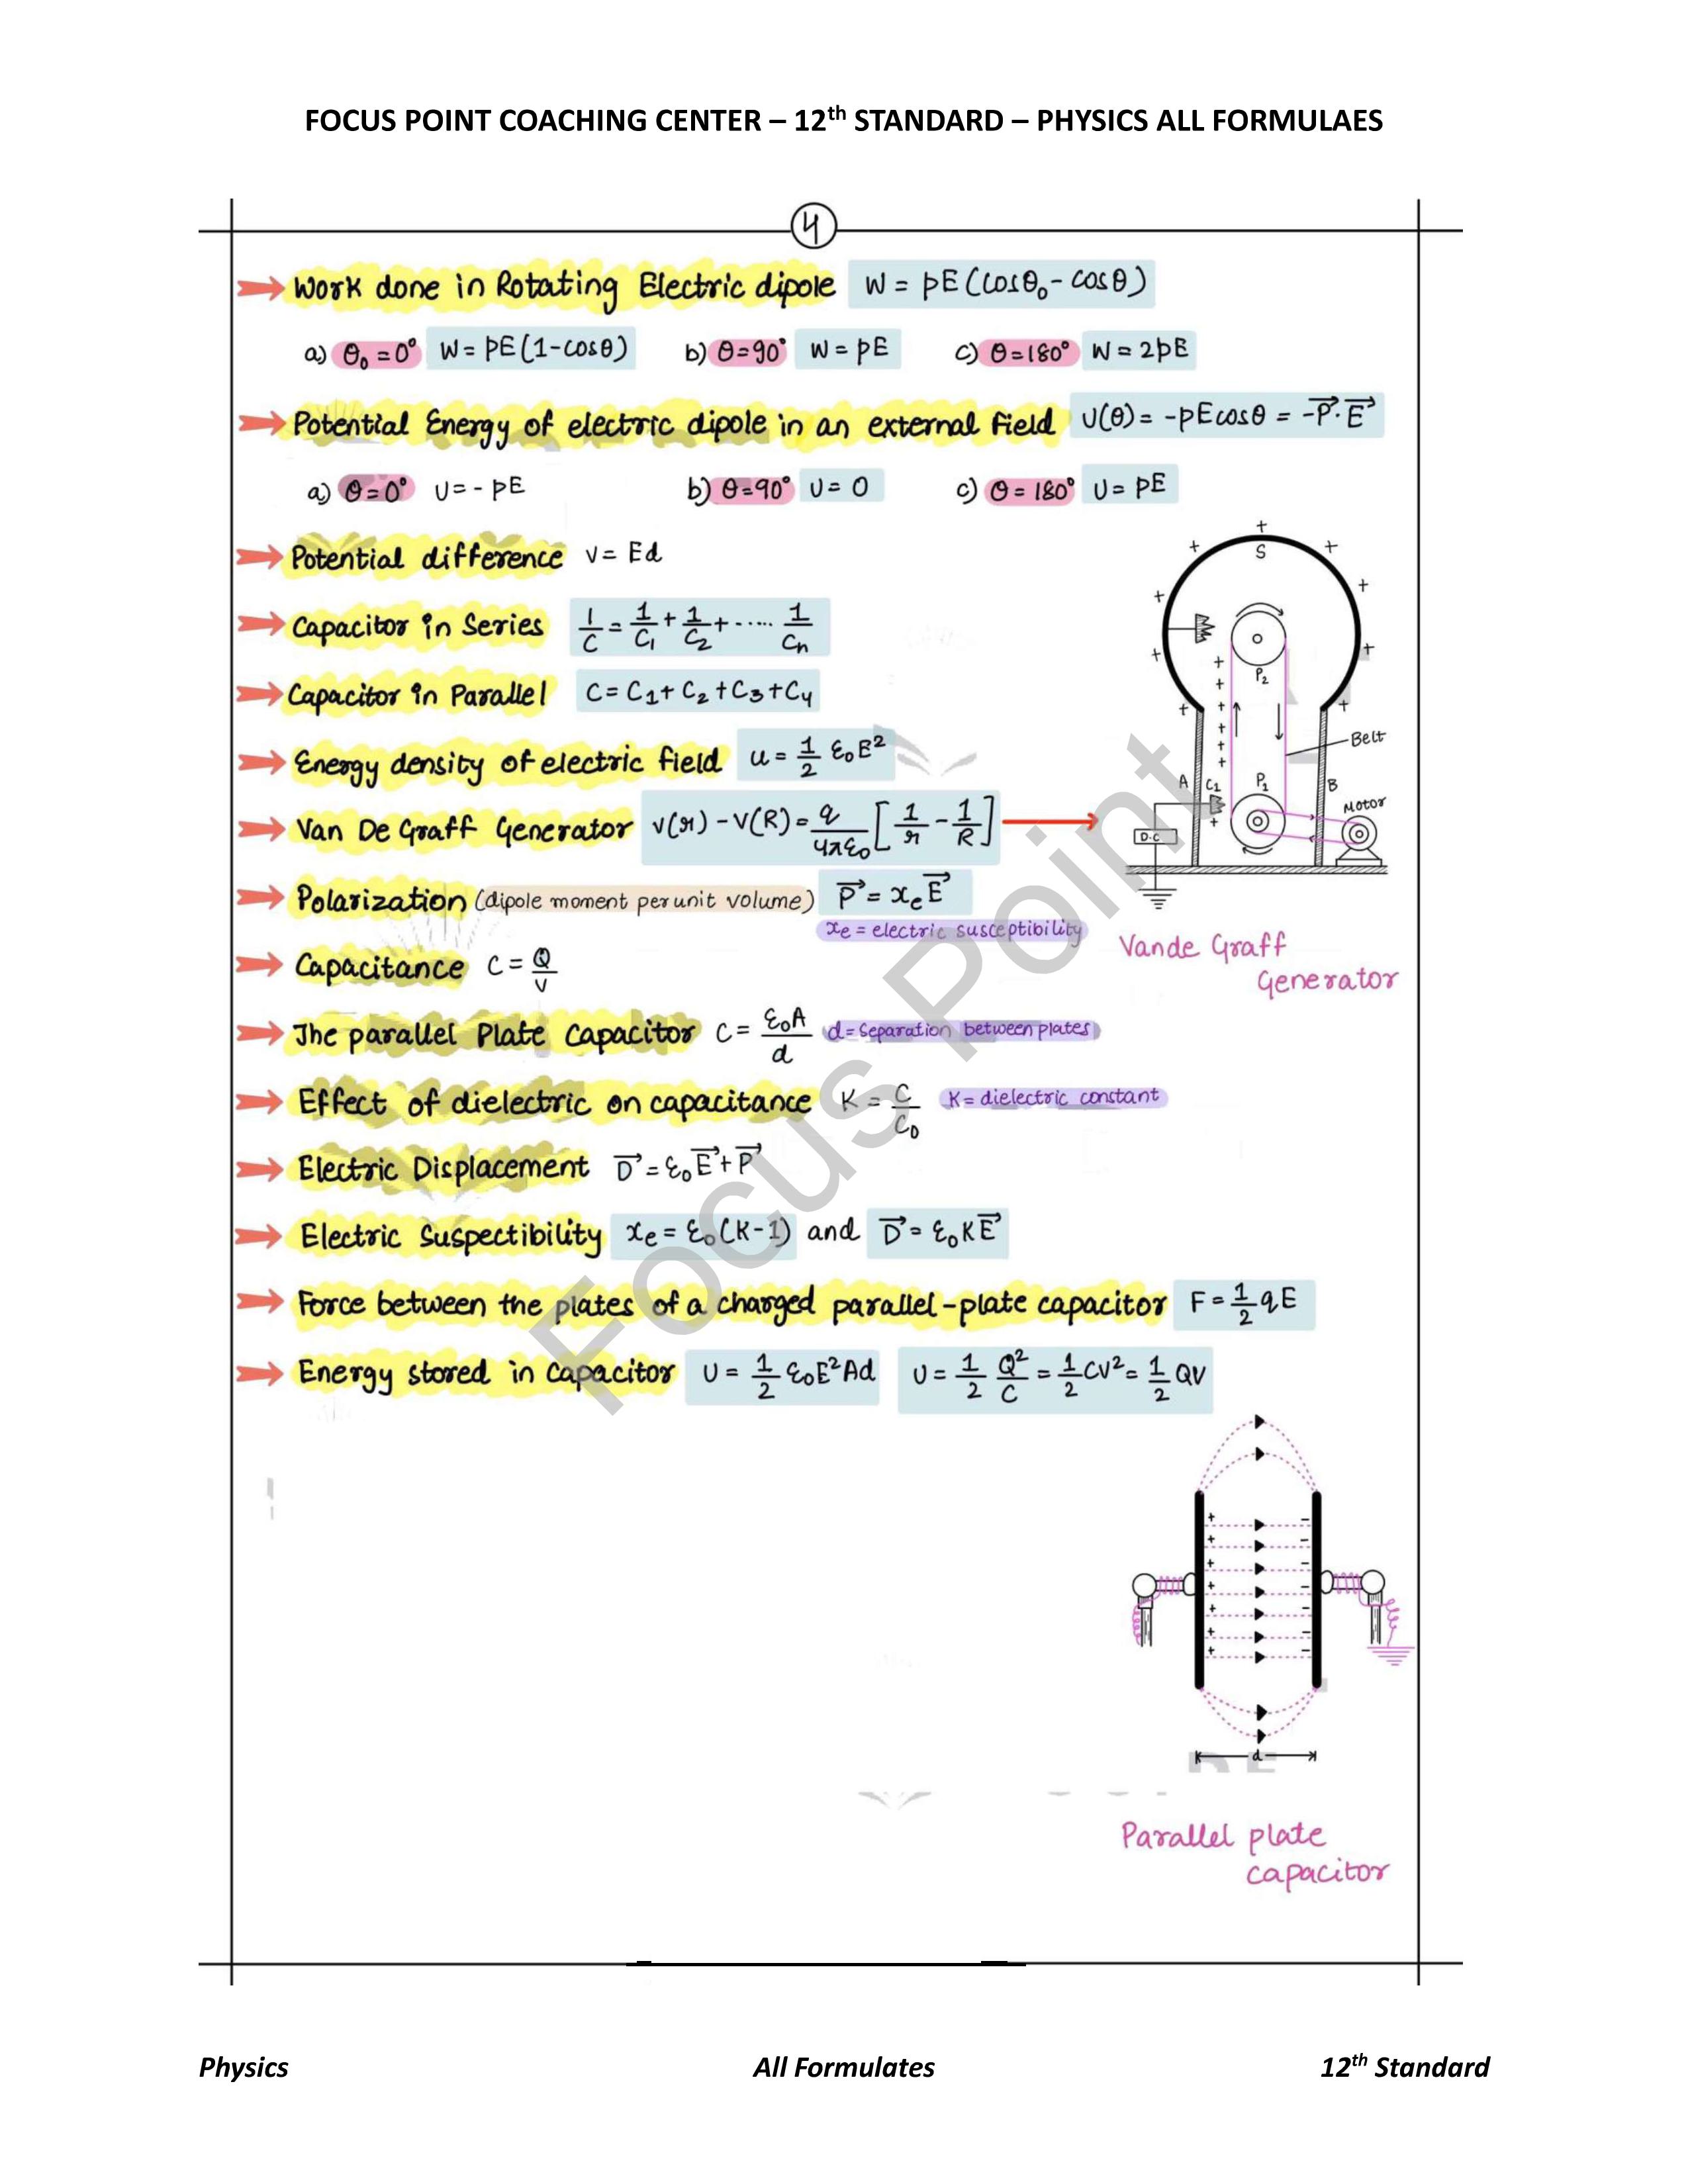 FOCUS POINT COACHING CENTER – 12th STANDARD – PHYSICS ALL FORMULAES
4
Work done in Rotating Electric dipole W = pE(cosθ₀ - cosθ)
a) θ₀ = 0° W = pE(1-cosθ) b) θ=90° W = pE c) θ=180° W = 2pE
Potential Energy of electric dipole in an external field U(θ) = -pEcosθ = -P⃗·E⃗
a) θ=0° U = - pE b) θ=90° U = 0 c) θ = 180° U = pE
Potential difference V = Ed
Capacitor in Series 1/C = 1/C₁ + 1/C₂ + ..... 1/Cn
Capacitor in Parallel C = C₁ + C₂ + C₃ + C₄
Energy density of electric field u = 1/2 ε₀E²
Van De Graff Generator V(r) - V(R) = q/4πε₀ [1/r - 1/R]
Polarization (dipole moment per unit volume) P⃗ = xₑE⃗
xₑ = electric susceptibility
Capacitance C = Q/V
The parallel Plate Capacitor C = ε₀A/d d = Separation between plates
Effect of dielectric on capacitance K = C/C₀ K = dielectric constant
Electric Displacement D⃗ = ε₀E⃗ + P⃗
Electric Suspectibility xₑ = ε₀(K-1) and D⃗ = ε₀KE⃗
Force between the plates of a charged parallel-plate capacitor F = 1/2 qE
Energy stored in capacitor U = 1/2 ε₀E²Ad U = 1/2 Q²/C = 1/2 CV² = 1/2 QV
S
P₂
Belt
A C₁ P₁ B
Motor
D.C
Vande Graff
Generator
d
Parallel plate
capacitor
Focus Point
Physics All Formulates 12th Standard